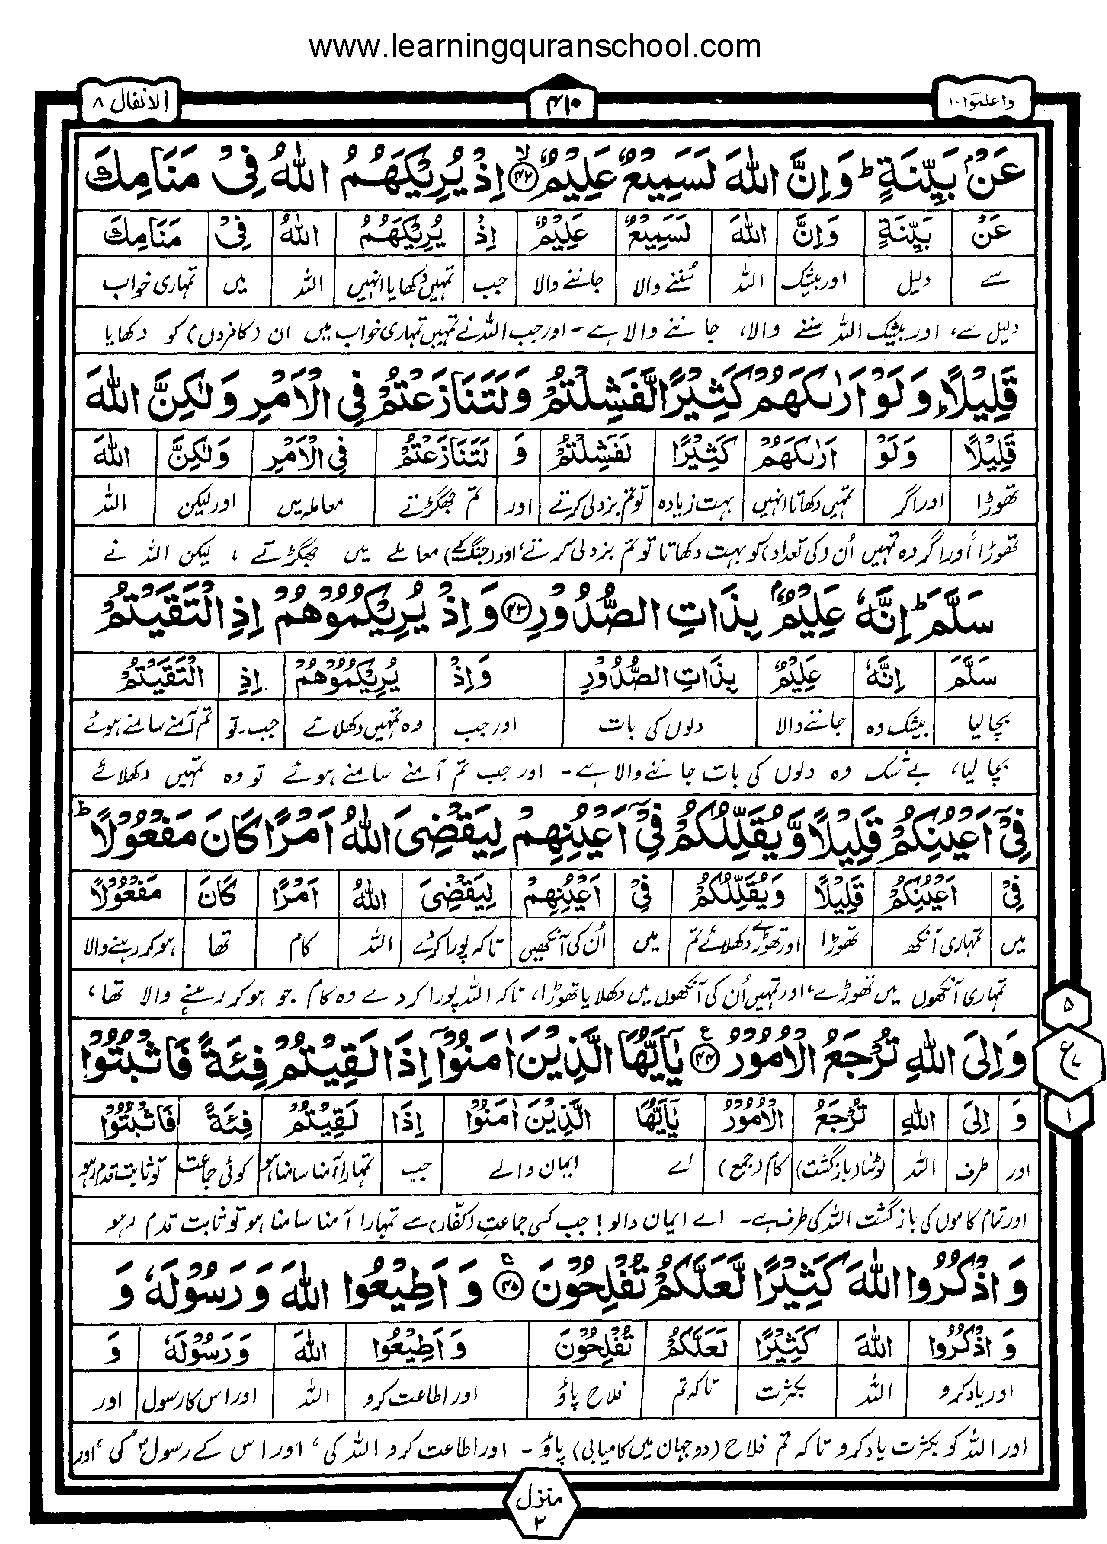 www.learningquranschool.com
الانفال ٨
۴۱۰
واعلموا ۱۰
عَنْۢ بَیِّنَةٍ ؕ وَ اِنَّ اللّٰهَ لَسَمِیْعٌ عَلِیْمٌ ۙ﴿۴۲﴾ اِذْ یُرِیْكَهُمُ اللّٰهُ فِیْ مَنَامِكَ
عَنْۢ بَیِّنَةٍ وَاِنَّ اللّٰهَ لَسَمِیْعٌ عَلِیْمٌ اِذْ یُرِیْكَهُمُ اللّٰهُ فِیْ مَنَامِكَ
سے دلیل اور بیشک اللہ سُننے والا جاننے والا جب تمہیں دکھایا انہیں اللہ میں تمہاری خواب
دلیل سے، اور بیشک اللہ سننے والا، جاننے والا ہے۔ اور جب اللہ نے تمہیں تمہاری خواب میں ان (کافروں) کو دکھایا
قَلِیْلًا ؕ وَ لَوْ اَرٰىكَهُمْ كَثِیْرًا لَّفَشِلْتُمْ وَ لَتَنَازَعْتُمْ فِی الْاَمْرِ وَ لٰكِنَّ اللّٰهَ
قَلِیْلًا وَلَوْ اَرٰىكَهُمْ كَثِیْرًا لَفَشِلْتُمْ وَ لَتَنَازَعْتُمْ فِی الْاَمْرِ وَلٰكِنَّ اللّٰهَ
تھوڑا اور اگر تمہیں دکھاتا انہیں بہت زیادہ تو تم بزدلی کرتے اور تم جھگڑتے معاملہ میں اور لیکن اللہ
تھوڑا، اور اگر وہ تمہیں اُن (کی تعداد) کو بہت دکھاتا تو تم بزدلی کرتے، اور (جنگ کے) معاملے میں جھگڑتے ، لیکن اللہ نے
سَلَّمَ ؕ اِنَّهٗ عَلِیْمٌۢ بِذَاتِ الصُّدُوْرِ ﴿۴۳﴾ وَ اِذْ یُرِیْكُمُوْهُمْ اِذِ الْتَقَیْتُمْ
سَلَّمَ اِنَّهٗ عَلِیْمٌۢ بِذَاتِ الصُّدُوْرِ وَاِذْ یُرِیْكُمُوْهُمْ اِذِ الْتَقَیْتُمْ
بچا لیا بیشک وہ جاننے والا دلوں کی بات اور جب وہ تمہیں دکھلائے جب۔تو تم آمنے سامنے ہوئے
بچا لیا، بے شک وہ دلوں کی بات جاننے والا ہے۔ اور جب تم آمنے سامنے ہوئے تو وہ تمہیں دکھلائے
فِیْۤ اَعْیُنِكُمْ قَلِیْلًا وَّ یُقَلِّلُكُمْ فِیْۤ اَعْیُنِهِمْ لِیَقْضِیَ اللّٰهُ اَمْرًا كَانَ مَفْعُوْلًا ؕ
فِیْۤ اَعْیُنِكُمْ قَلِیْلًا وَیُقَلِّلُكُمْ فِیْۤ اَعْیُنِهِمْ لِیَقْضِیَ اللّٰهُ اَمْرًا كَانَ مَفْعُوْلًا
میں تمہاری آنکھ تھوڑا اور تھوڑے دکھلائے تم میں اُن کی آنکھیں تاکہ پورا کرے اللہ کام تھا ہو کر رہنے والا
تمہاری آنکھوں میں تھوڑے، اور تمہیں اُن کی آنکھوں میں دکھلایا تھوڑا، تاکہ اللہ پورا کر دے وہ کام جو ہو کر رہنے والا تھا،
وَ اِلَی اللّٰهِ تُرْجَعُ الْاُمُوْرُ ﴿۴۴﴾ یٰۤاَیُّهَا الَّذِیْنَ اٰمَنُوْۤا اِذَا لَقِیْتُمْ فِئَةً فَاثْبُتُوْا
وَ اِلَی اللّٰهِ تُرْجَعُ الْاُمُوْرُ یٰۤاَیُّهَا الَّذِیْنَ اٰمَنُوْۤا اِذَا لَقِیْتُمْ فِئَةً فَاثْبُتُوْا
اور طرف اللہ لوٹنا (بازگشت) کام (جمع) اے ایمان والے جب تمہارا آمنا سامنا ہو کوئی جماعت تو ثابت قدم رہو
اور تمام کاموں کی بازگشت اللہ کی طرف ہے۔ اے ایمان والو! جب کسی جماعت (کفار) سے تمہارا آمنا سامنا ہو تو ثابت قدم رہو
۵
ع
۱
وَ اذْكُرُوا اللّٰهَ كَثِیْرًا لَّعَلَّكُمْ تُفْلِحُوْنَ ۚ﴿۴۵﴾ وَ اَطِیْعُوا اللّٰهَ وَ رَسُوْلَهٗ وَ
وَ اذْكُرُوا اللّٰهَ كَثِیْرًا لَعَلَّكُمْ تُفْلِحُوْنَ وَ اَطِیْعُوا اللّٰهَ وَ رَسُوْلَهٗ وَ
اور یاد کرو اللہ بکثرت تاکہ تم فلاح پاؤ اور اطاعت کرو اللہ اور اس کا رسول اور
اور اللہ کو بکثرت یاد کرو تاکہ تم فلاح (دو جہان میں کامیابی) پاؤ ۔ اور اطاعت کرو اللہ کی، اور اس کے رسولؐ کی، اور
منزل
۲